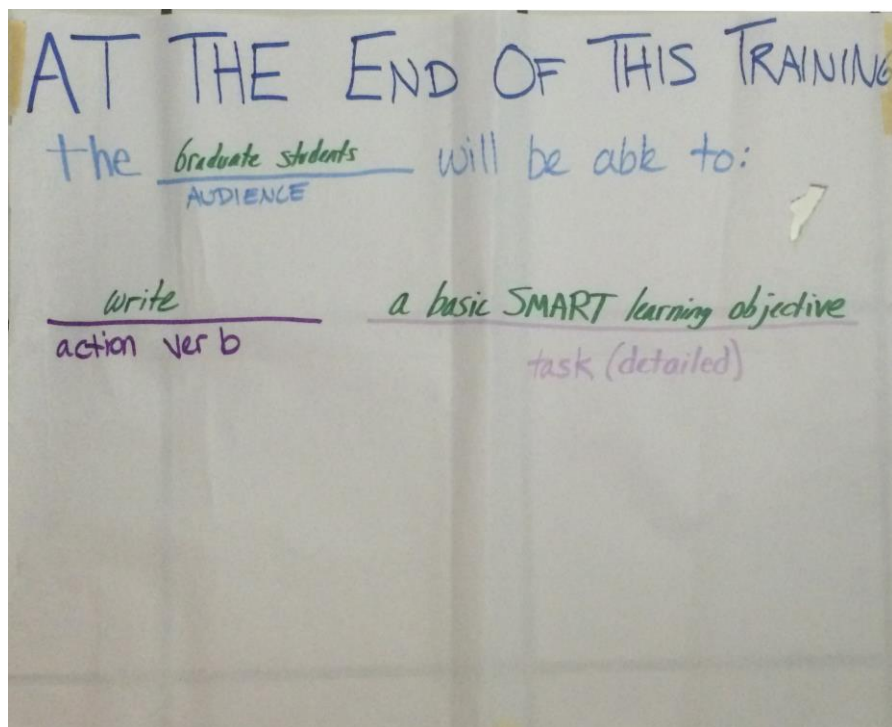 AT THE END OF THIS TRAINING
the Graduate students will be able to:
AUDIENCE
write a basic SMART learning objective
action verb task (detailed)